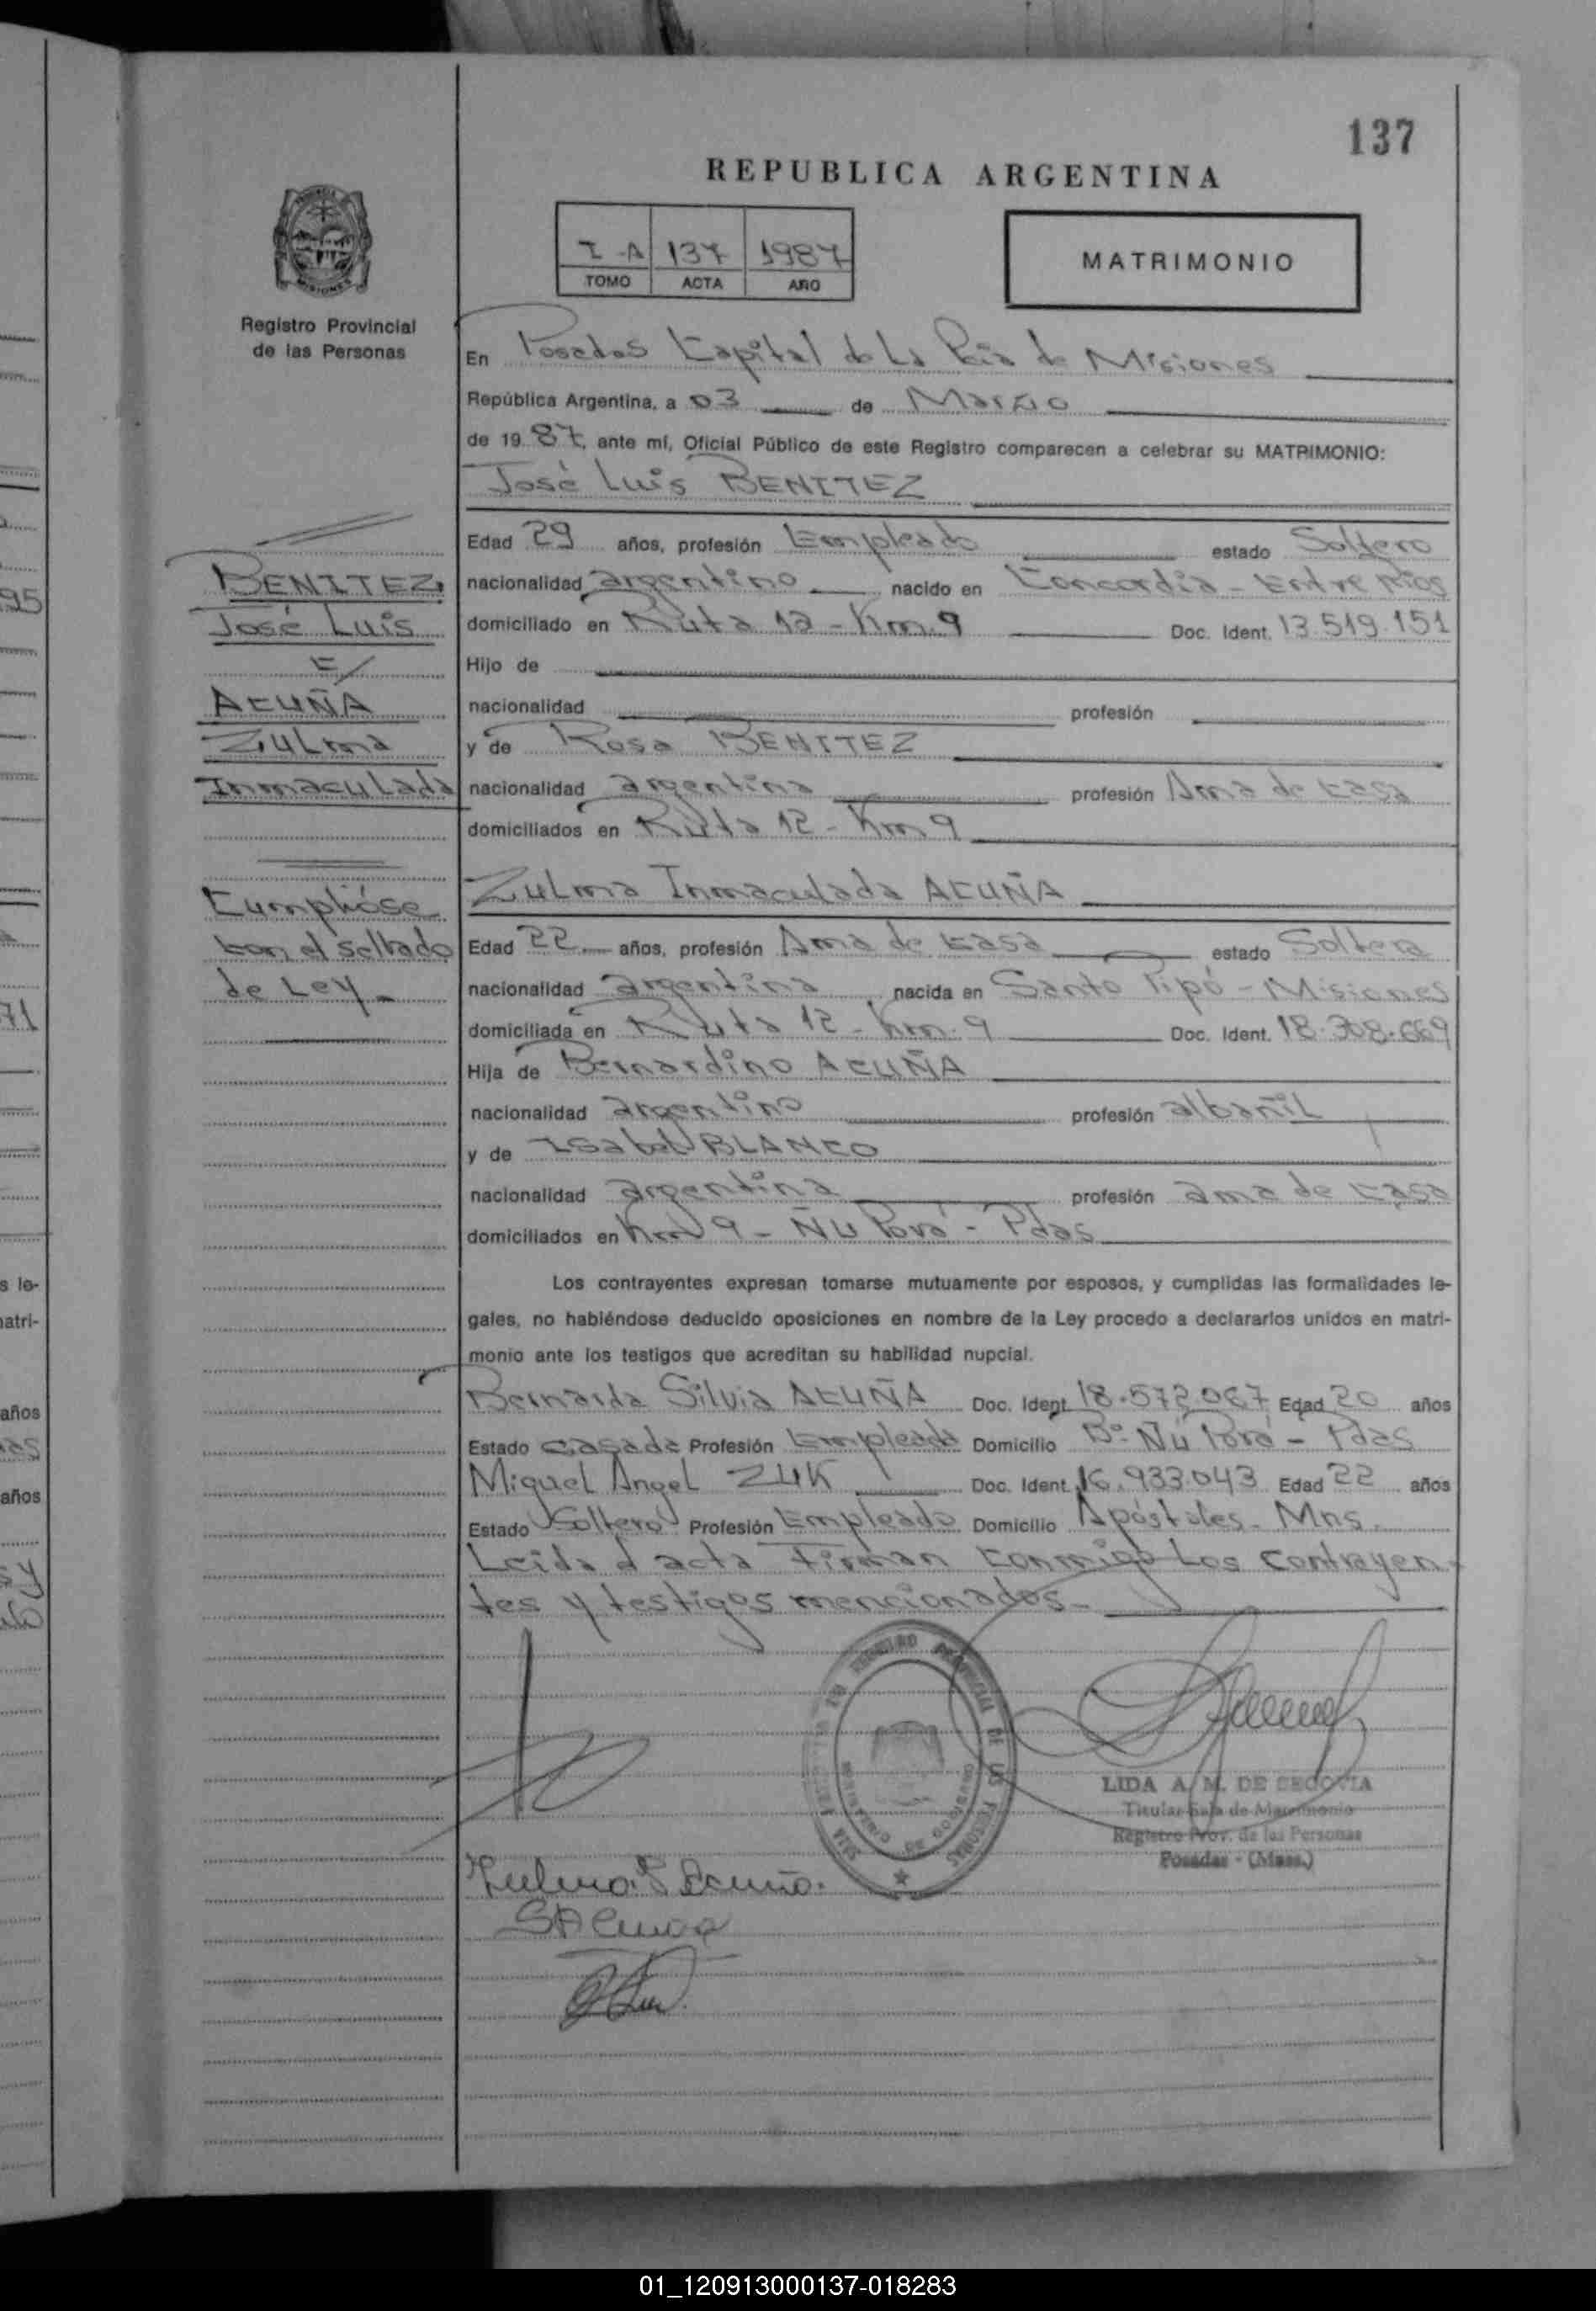 137
REPUBLICA ARGENTINA
I-A 137 1987
TOMO ACTA AÑO
MATRIMONIO
Registro Provincial
de las Personas
En Posadas Capital de La Pcia de Misiones
República Argentina, a 03 de Marzo
de 1987, ante mí, Oficial Público de este Registro comparecen a celebrar su MATRIMONIO:
José Luis BENITEZ
Edad 29 años, profesión Empleado estado Soltero
nacionalidad argentino nacido en Concordia - Entre Ríos
domiciliado en Ruta 12 - Km. 9 Doc. Ident. 13.519.151
Hijo de
nacionalidad profesión
y de Rosa BENITEZ
nacionalidad argentina profesión Ama de casa
domiciliados en Ruta 12 - Km 9
Zulma Inmaculada ACUÑA
Edad 22 años, profesión Ama de casa estado Soltera
nacionalidad argentina nacida en Santo Pipó - Misiones
domiciliada en Ruta 12 - Km. 9 Doc. Ident. 18.308.669
Hija de Bernardino ACUÑA
nacionalidad argentino profesión albañil
y de Isabel BLANCO
nacionalidad argentina profesión ama de casa
domiciliados en Km 9 - Ñu Porá - Pdas
Los contrayentes expresan tomarse mutuamente por esposos, y cumplidas las formalidades le-
gales, no habiéndose deducido oposiciones en nombre de la Ley procedo a declararlos unidos en matri-
monio ante los testigos que acreditan su habilidad nupcial.
Bernarda Silvia ACUÑA Doc. Ident. 18.572.067 Edad 20 años
Estado casada Profesión Empleada Domicilio B° Ñu Porá - Pdas
Miguel Angel ZUK Doc. Ident. 16.933.043 Edad 22 años
Estado Soltero Profesión Empleado Domicilio Apóstoles - Mns.
Leida el acta Firman conmigo Los contrayen-
tes y testigos mencionados.
BENITEZ,
José Luis
c/
ACUÑA
Zulma
Inmaculada
Cumplióse
con el sellado
de Ley -
LIDA A. M. DE SEGOVIA
Titular Sala de Matrimonio
Registro Prov. de las Personas
Posadas - (Mnes.)
REGISTRO PROVINCIAL DE LAS PERSONAS
Zulma I Acuña.
SAcuña
95
71
s le-
matri-
años
años
01_120913000137-018283